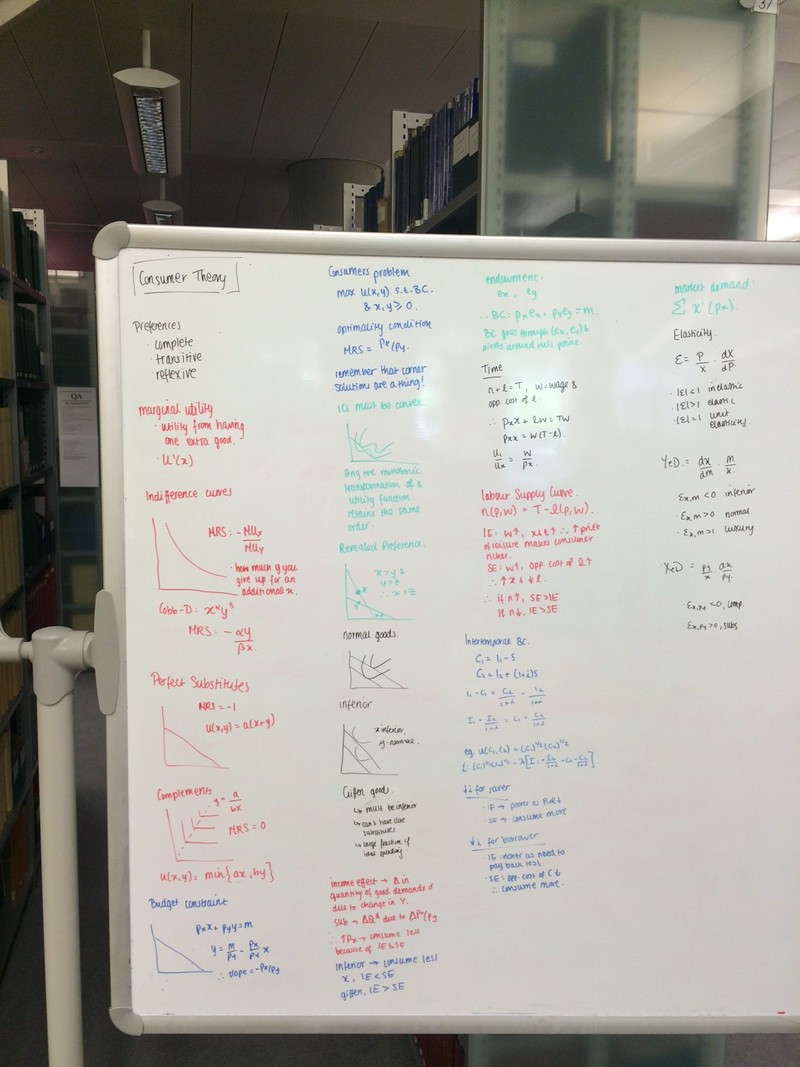 Consumer Theory
Preferences
· complete
· transitive
· reflexive
marginal utility
· utility from having
one extra good.
· U'(x)
Indifference curves
MRS: - MUx/MUy
· how much y you
give up for an
additional x.
Cobb-D: x^α y^β
MRS: - αy/βx.
Perfect Substitutes
MRS = -1
U(x,y) = a(x+y)
Complements
y = a/bx
MRS = 0
U(x,y) = min{ax, by}
Budget constraint
Pxx + Pyy = m
y = m/Py - Px/Py x
∴ slope = -Px/Py
Consumers problem
max U(x,y) s.t. BC.
& x,y ≥ 0.
optimality condition
MRS = Px/Py.
remember that corner
solutions are a thing!
ICs must be convex
Any +ve monotonic
transformation of a
utility function
retains the same
order.
Revealed Preference.
x > y &
y > z
∴ x > z
normal goods.
inferior
x inferior,
y normal
Giffen goods.
↳ must be inferior
↳ can't have close
substitutes
↳ large fraction of
total spending
income effect → Δ in
quantity of good demanded
due to change in Y.
Sub → ΔQd due to ΔPx/Py
∴ ↑Px → consume less
because of IE & SE
Inferior → consume less
x, IE < SE
giffen, IE > SE
endowment.
ex, ey
∴ BC: Pxex + Pyey = m.
BC goes through (ex, ey) &
pivots around this point.
Time
n + l = T, w = wage &
opp. cost of l.
∴ Pxx + lw = Tw
Pxx = w(T-l).
Ul/Ux = w/Px.
Labour Supply Curve.
n(P,w) = T - l(P,w).
IE: w↑, x&l↑ ∴ ↑ price
of leisure makes consumer
richer.
SE: w↑, opp. cost of l↑
∴ ↑x & ↓l.
∴ if n↑, SE>IE
if n↓, IE>SE
Intertemporal BC.
C₁ = I₁ - S
C₂ = I₂ + (1+i)S
I₁ - C₁ = C₂/1+i - I₂/1+i
I₁ + I₂/1+i = C₁ + C₂/1+i
eg. U(C₁,C₂) = (C₁)^1/2 (C₂)^1/2
L: (C₁)^1/2 (C₂)^1/2 - λ[I₁ + I₂/1+i - C₁ - C₂/1+i]
↓i for saver
· IE → poorer as RoR↓
· SE → consume more
↓i for borrower
· IE: richer as need to
pay back less
· SE: opp. cost of C↓
∴ consume more.
market demand:
Σ xi (Px).
Elasticity.
Ɛ = P/x · dX/dP.
· |Ɛ|<1 inelastic
· |Ɛ|>1 elastic
· |Ɛ|=1 unit
elasticity.
YED = dx/dm · m/x.
· Ɛx,m < 0 inferior
· Ɛx,m > 0 normal
· Ɛx,m > 1 luxury
XED = Py/x · dx/Py.
· Ɛx,Py < 0, comp.
· Ɛx,Py > 0, subs
QA
37